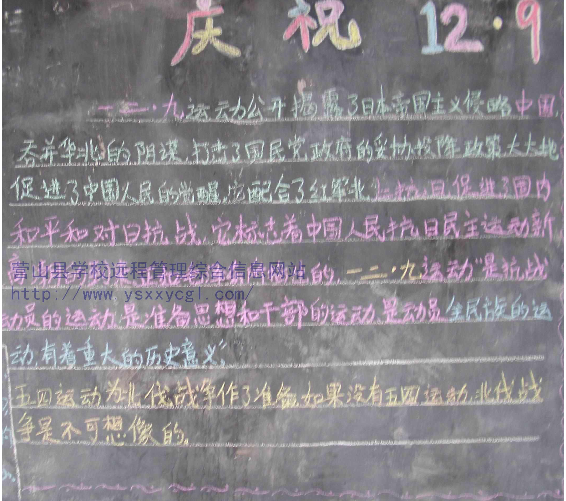 庆祝 12·9
一二·九运动公开揭露了日本帝国主义侵略中国,
吞并华北的阴谋,打击了国民党政府的妥协投降政策,大大地
促进了中国人民的觉醒,它配合了红军北上抗日,促进了国内
和平和对日抗战,它标志着中国人民抗日民主运动新
营山县学校远程管理综合信息网站 的,一二·九运动"是抗战
http://www.ysxxycgl.com/
动员的运动,是准备思想和干部的运动,是动员全民族的运
动,有着重大的历史意义;
五四运动为北伐战争作了准备,如果没有五四运动,北伐战
争是不可想像的。